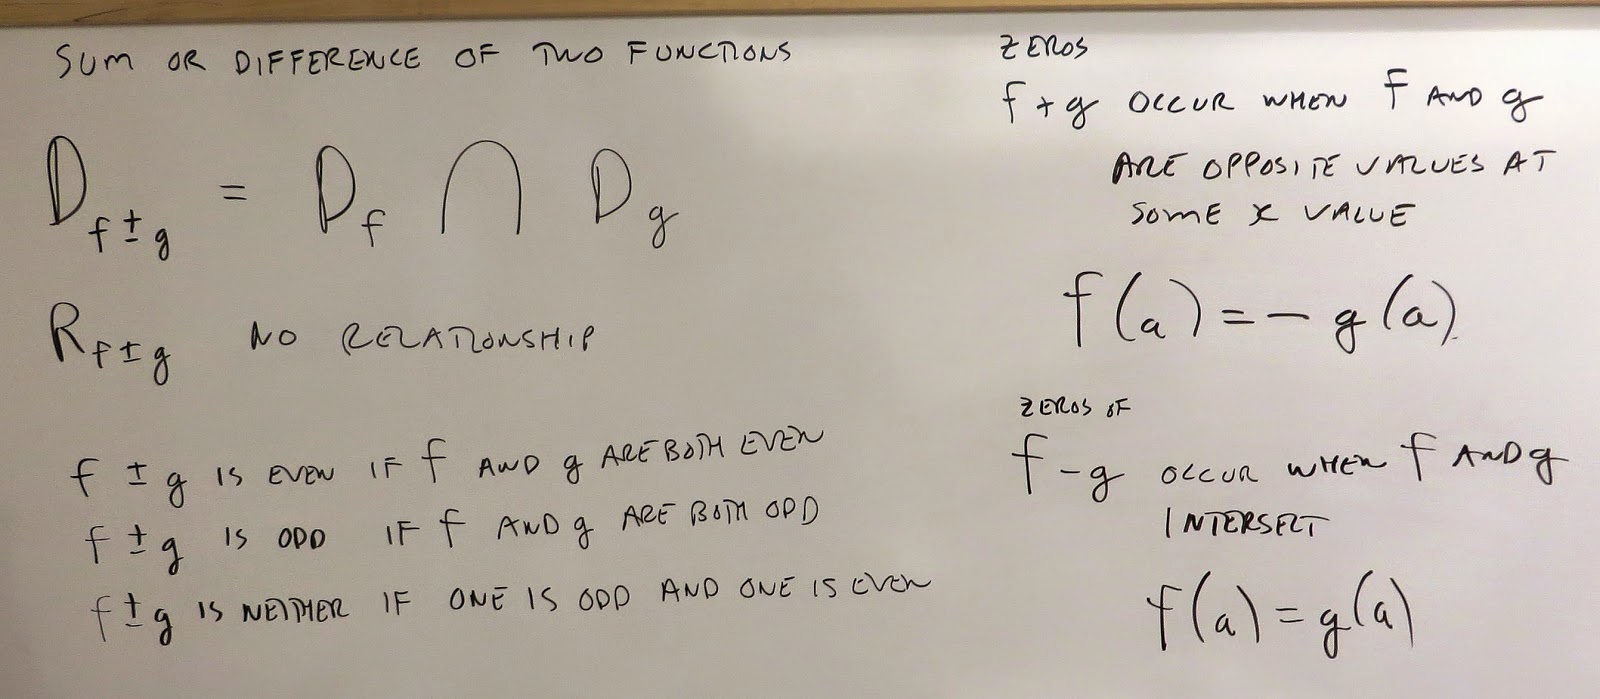 SUM OR DIFFERENCE OF TWO FUNCTIONS
D f ± g = D f ∩ D g
R f ± g NO RELATIONSHIP
f ± g IS EVEN IF f AND g ARE BOTH EVEN
f ± g IS ODD IF f AND g ARE BOTH ODD
f ± g IS NEITHER IF ONE IS ODD AND ONE IS EVEN
ZEROS
f + g OCCUR WHEN f AND g
ARE OPPOSITE VALUES AT
SOME X VALUE
f(a) = - g(a)
ZEROS OF
f - g OCCUR WHEN f AND g
INTERSECT
f(a) = g(a)